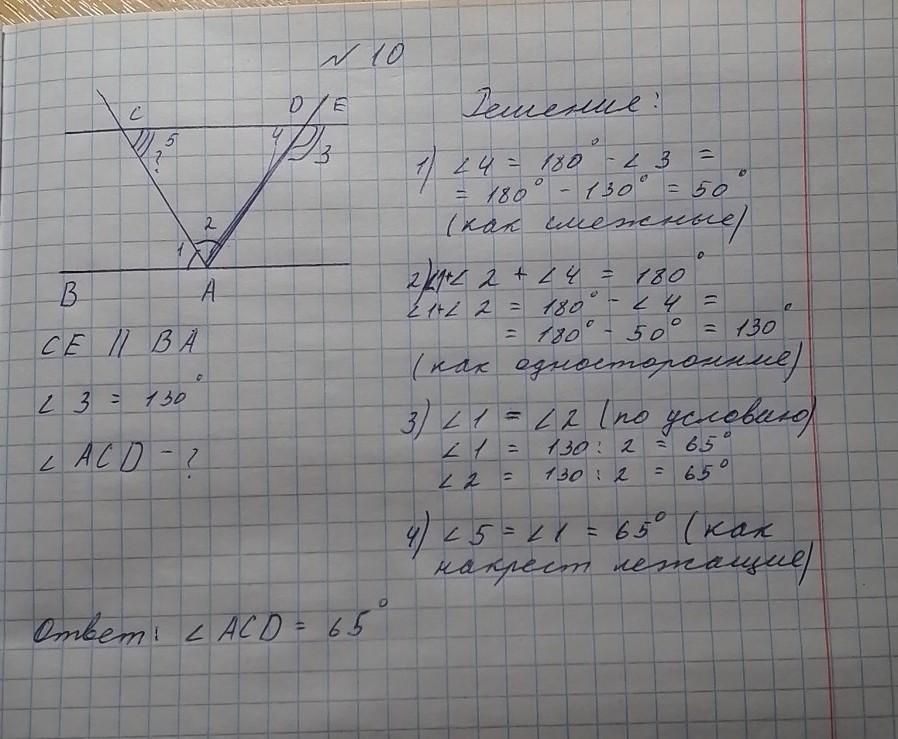 № 10
C D E
5 4 3
?
2
1
B A
CE || BA
∠ 3 = 130°
∠ ACD - ?
Решение:
1) ∠4 = 180° - ∠ 3 =
= 180° - 130° = 50°
(как смежные)
2) ∠1+∠ 2 + ∠4 = 180°
∠1+∠ 2 = 180° - ∠ 4 =
= 180° - 50° = 130°
(как односторонние)
3) ∠1 = ∠2 (по условию)
∠1 = 130 : 2 = 65°
∠2 = 130 : 2 = 65°
4) ∠5 = ∠1 = 65° (как
накрест лежащие)
Ответ: ∠ ACD = 65°